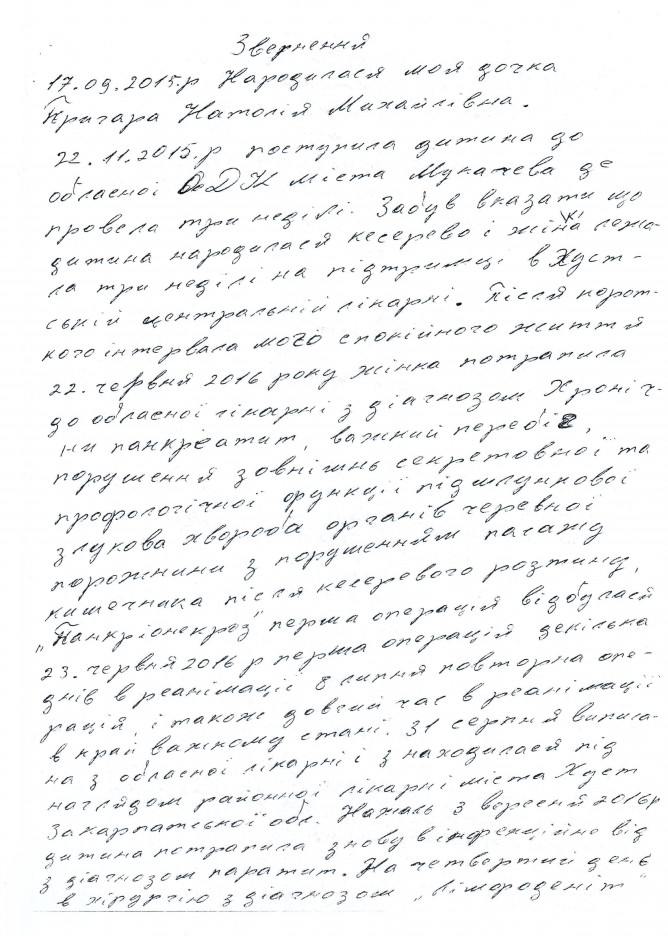 Звернення
17.09.2015.р Народилася моя дочка
Пригара Наталія Михайлівна.
22.11.2015.р поступила дитина до
обласної ОДК міста Мукачева де
провела три неділі. Забув вказати що
дитина народилася кесерево і жінка лежа-
ла три неділі на підтримці в Хуст-
ській центральній лікарні. Після корот-
кого інтервала мого спокійного життя
22. червня 2016 року жінка потрапила
до обласної лікарні з діагнозом Хроніч-
ни панкріатит, важкий перебіг,
порушення зовнішнь секретовної та
профологічної функції підшлункової
злукова хвороба органів черевної
порожнини з порушенням пасажу
кишечника після кесеревого розтину,
„Панкріонекроз" перша операція відбулася
23. червня 2016 р перша операція декілька
днів в реанімації 8 липня повторна опе-
рація, і також довгий час в реанімації
в край важкому стані. 31 серпня виписа-
на з обласної лікарні і знаходилася під
наглядом районної лікарні міста Хуст
Закарпатської обл. Нажаль 3 вересня 2016р
дитина потрапила знову в інфекційне від
з діагнозом паратит. На четвертий день
в хірургію з діагнозом „Лімфоденіт"